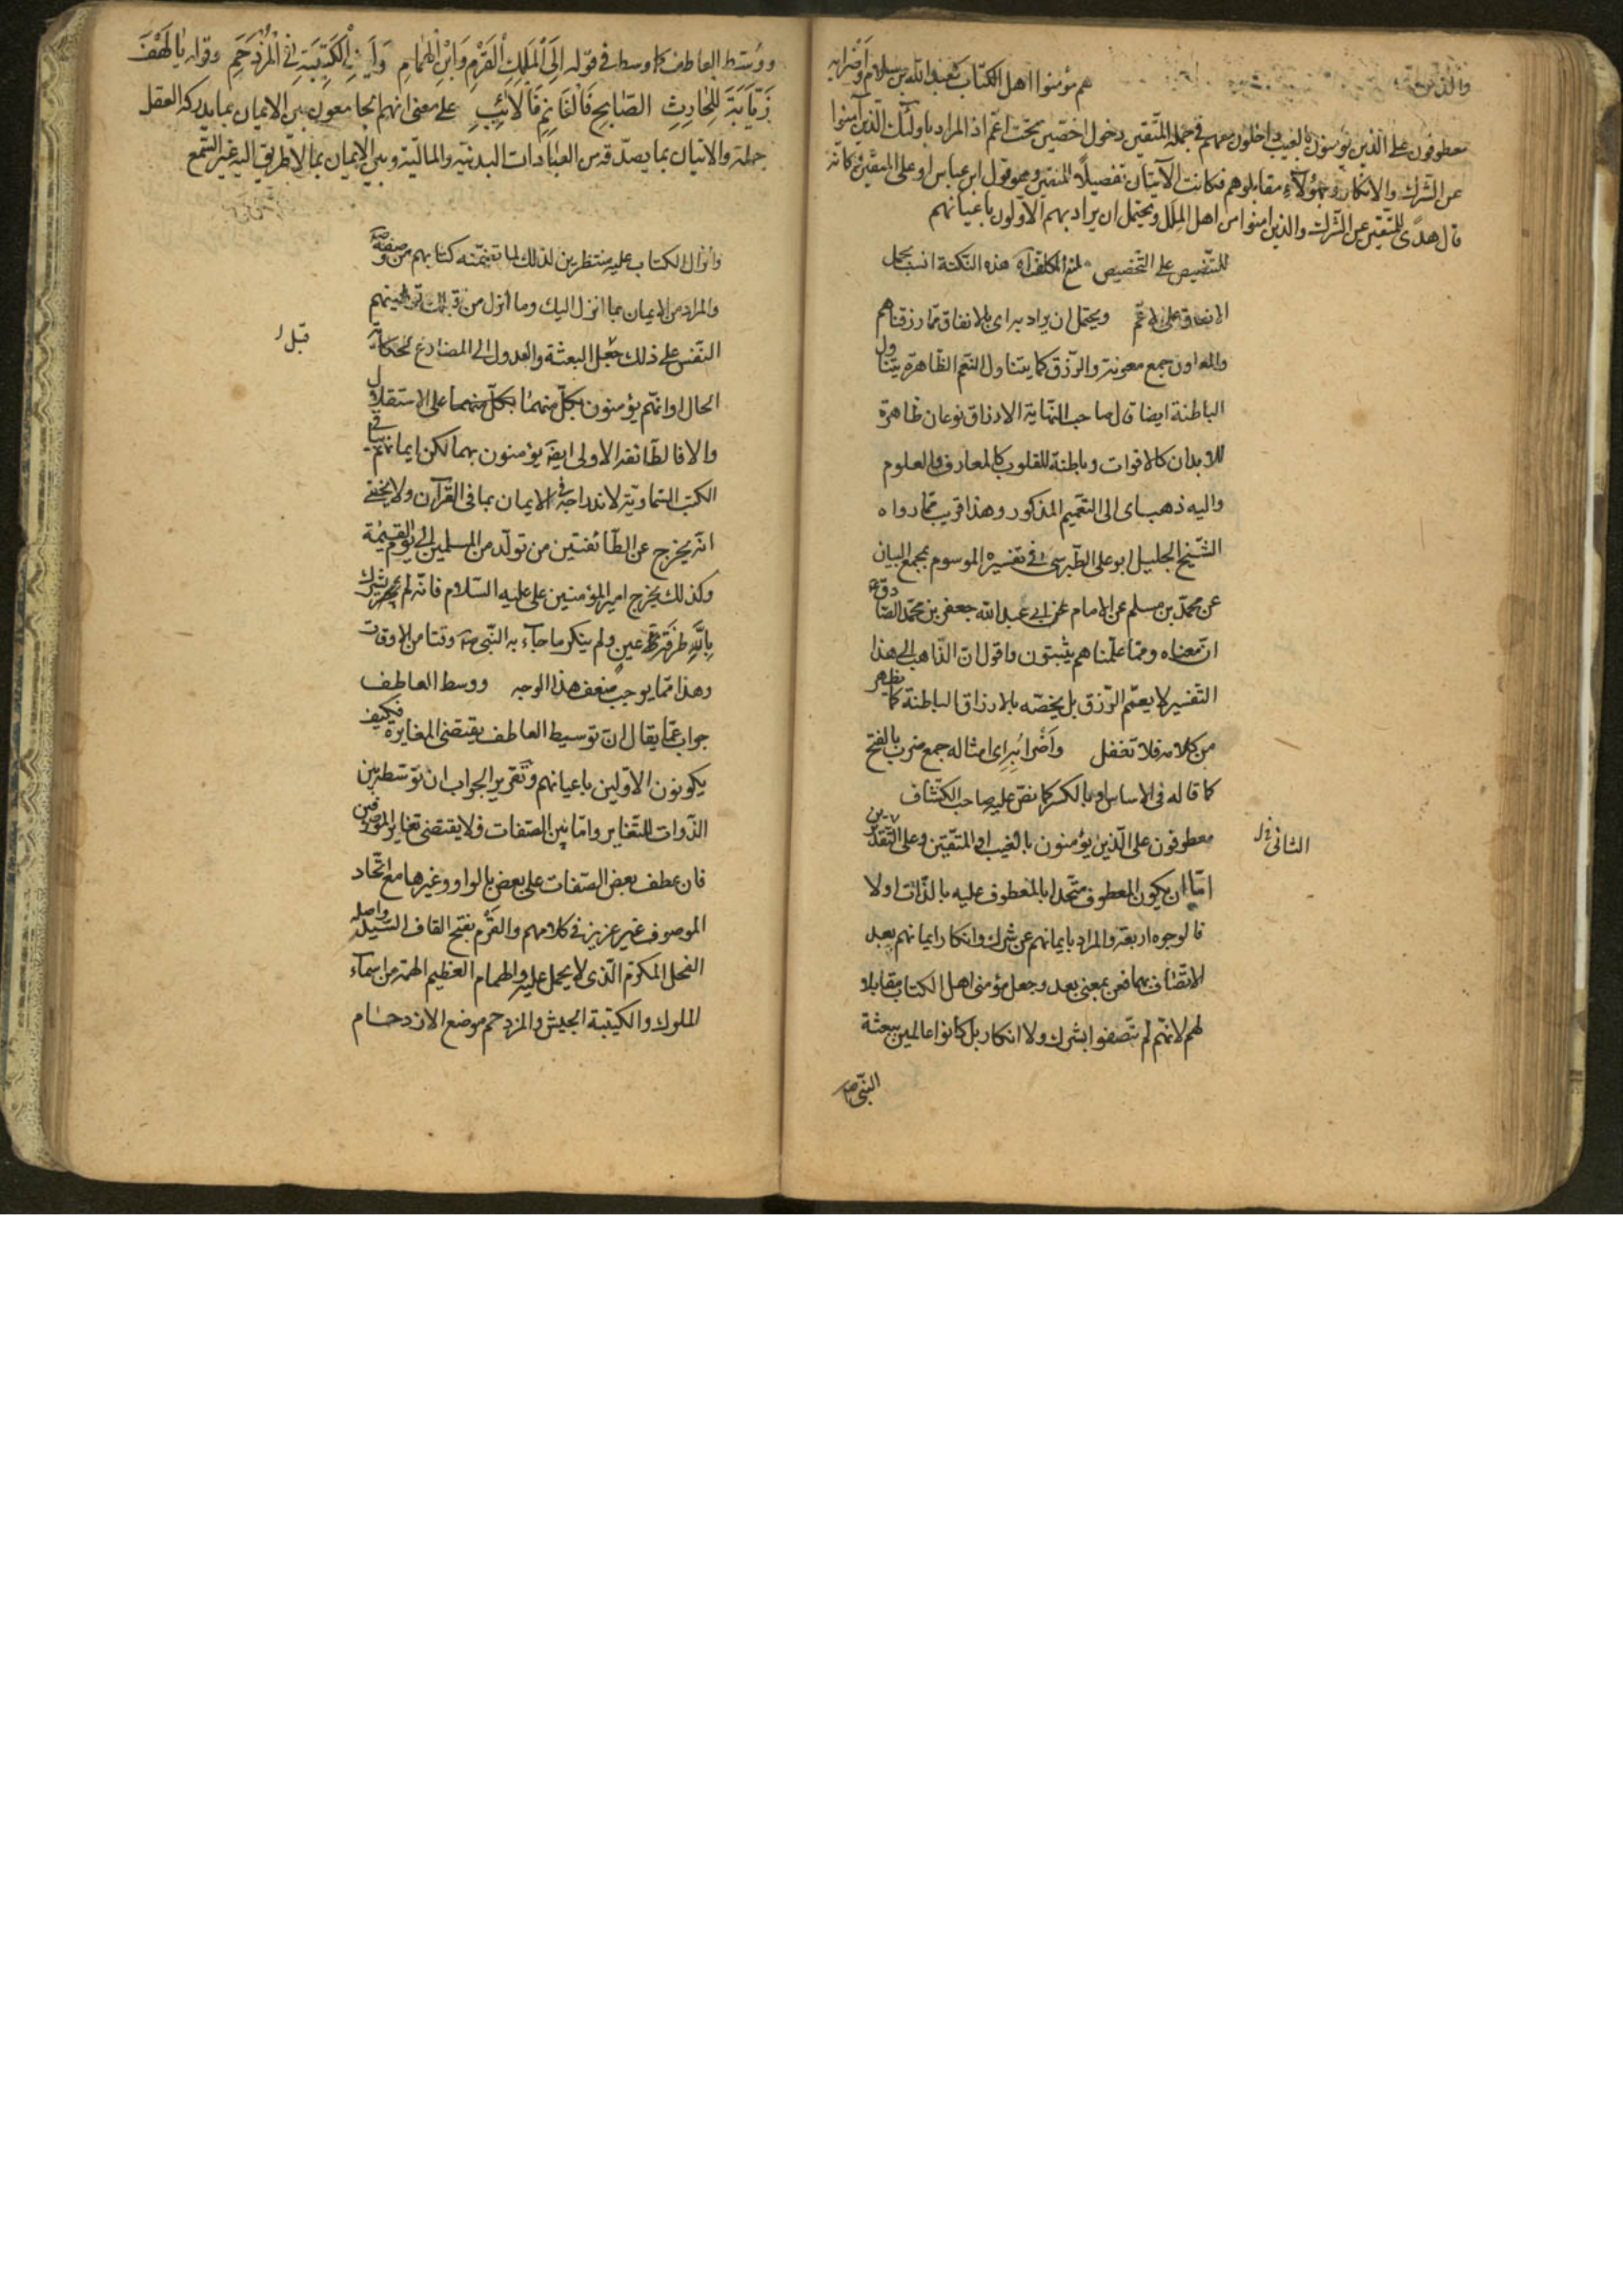 هم مؤمنوا اهل الكتاب كعبد الله بن سلام وأضرابه
معطوفون على الذين يؤمنون بالغيب داخلون معهم في جملة المتقين دخول اخصين تحت اعم اذ المراد باولئك الذين آمنوا
عن الشرك والانكار وبهؤلاء مقابلوهم فكانت الآيتان تفصيلا للمتقين وهو قول ابن عباس او على المتقين فكانه
قال هدى للمتقين عن الشرك والذين امنوا من اهل الملل ويحتمل ان يراد بهم الاولون باعيانهم
للتنصيص على التخصيص لمنع المكلف اه هذه النكتة انسب بحمل
الانفاق على الاعم ويحتمل ان يراد به اى بالانفاق مما رزقناهم
والمعاون جمع معونة والرزق كما يتناول النعم الظاهرة يتناول
الباطنة ايضا قال صاحب النهاية الارزاق نوعان ظاهرة
للابدان كالاقوات وباطنة للقلوب كالمعارف والعلوم
واليه ذهب اى الى التعميم المذكور وهذا قريب مما رواه
الشيخ الجليل ابو على الطبرسى في تفسيره الموسوم بمجمع البيان
عن محمد بن مسلم عن الامام عن ابي عبد الله جعفر بن محمد الصادق ع
ان معناه ومما علمناهم يبثون واقول ان الذاهب الى هذا
التفسير لا يعمم الرزق بل يخصه بالارزاق الباطنة كما يظهر
من كلامه فلا تغفل وأضرابه اى امثاله جمع ضرب بالفتح
كما قاله في الاساس او بالكسر كما نص عليه صاحب الكشاف
معطوفون على الذين يؤمنون بالغيب او المتقين وعلى التقديرين
الثاني
اما ان يكون المعطوف متحدا بالمعطوف عليه بالذات اولا
فالوجوه اربعة والمراد بايمانهم عن شرك وانكار ايمانهم بعد
الاتصاف بهما فعن بمعنى بعد وجعل مؤمنى اهل الكتاب مقابلا
لهم لانهم لم يتصفوا بشرك ولا انكار بل كانوا عالمين ببعثة
النبي ص
ووسط العاطف كما وسط في قوله الى الملك القرم وابن الهمام وليث الكتيبة في المزدحم وقوله يا لهف
زيابة للحارث الصابح فالغانم فالآئب على معنى انهم الجامعون بين الايمان بما يدركه العقل
جملة والاتيان بما يصدقه من العبادات البدنية والمالية وبين الايمان بما لا طريق اليه غير السمع
وانزال الكتاب عليه منتظرين لذلك لما تضمنته كتابهم من وصفه ص
والمراد من الايمان بما انزل اليك وما انزل من قبلك توطينهم
النفس على ذلك قبل البعثة والعدول الى المضارع لحكاية
قبل
الحال او انهم يؤمنون بكل منهما بكل منهما على الاستقلال
والا فالطائفة الاولى ايضا يؤمنون بهما لكن ايمانهم بباقي
الكتب السماوية لاندراجه في الايمان بما في القرآن ولا يخفى
انه يخرج عن الطائفتين من تولد من المسلمين الى يوم القيمة
وكذلك يخرج امير المؤمنين على عليه السلام فانه لم يشرك
بالله طرفة عين ولم ينكر ما جاء به النبي ص وقتا من الاوقات
وهذا مما يوجب ضعف هذا الوجه ووسط العاطف
جواب عما يقال ان توسيط العاطف يقتضى المغايرة فكيف
يكونون الاولين باعيانهم وتقرير الجواب ان توسطه بين
الذوات للتغاير واما بين الصفات فلا يقتضى تغاير الموصوفين
فان عطف بعض الصفات على بعض بالواو وغيرها مع اتحاد
الموصوف غير عزيز في كلامهم والقرم بفتح القاف السيد واصله
الفحل المكرم الذى لا يحمل عليه والهمام العظيم الهمة من اسماء
الملوك والكتيبة الجيش والمزدحم موضع الازدحام